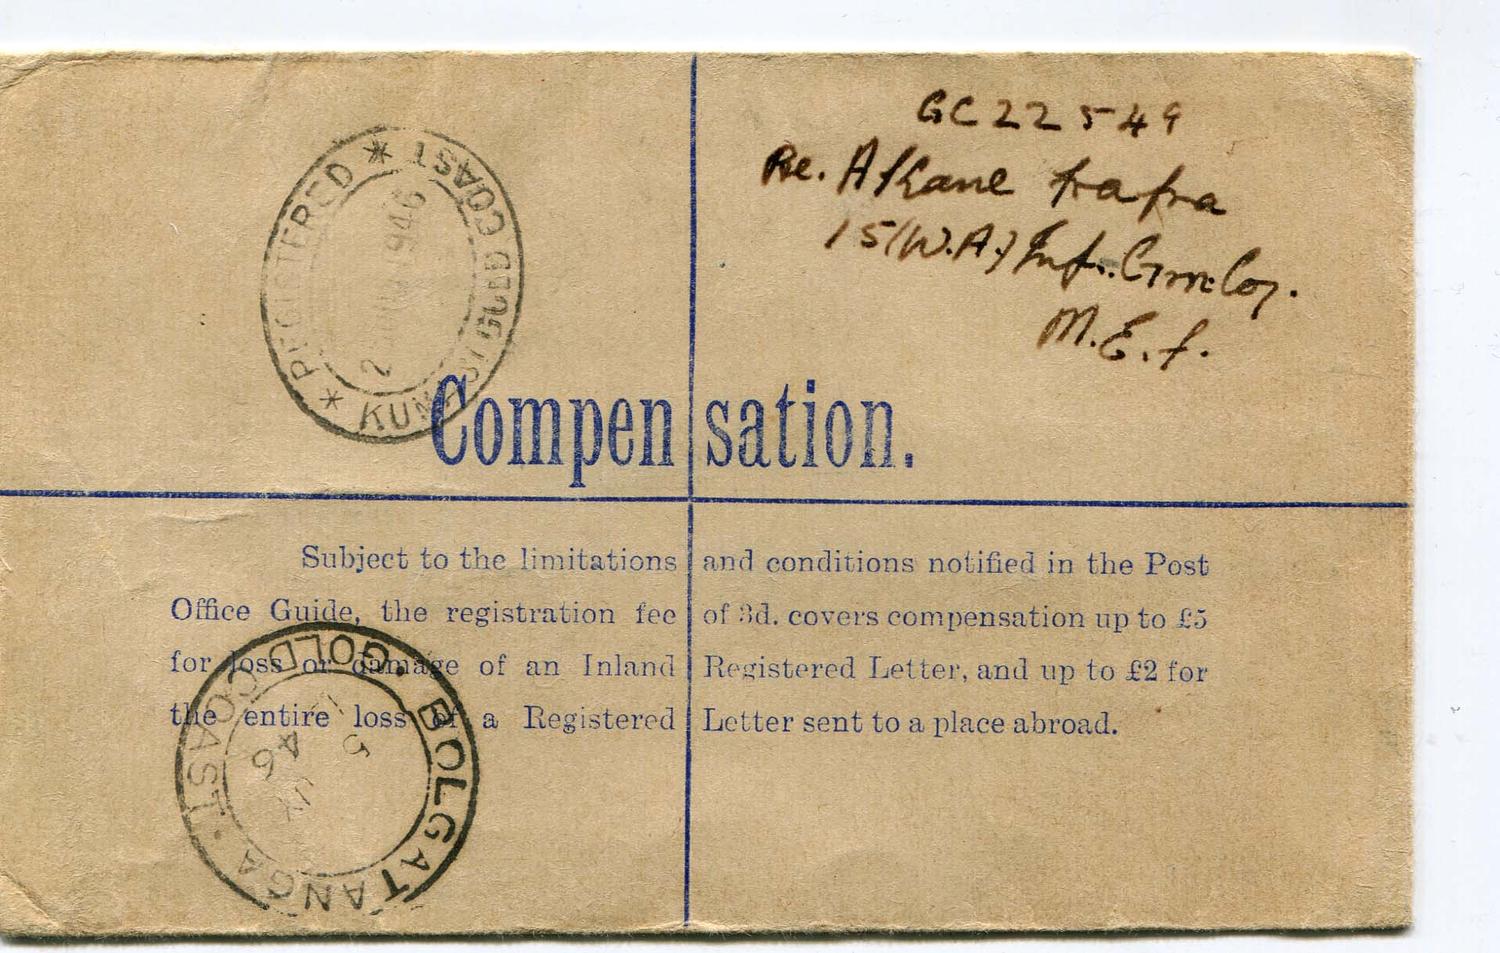 GC22549
Pte. Alhane Frafra
15 (W.A.) Inf. Gm. Coy.
M.E.F.
* REGISTERED * KUMASI GOLD COAST
2 1946
Compensation.
Subject to the limitations and conditions notified in the Post
Office Guide, the registration fee of 3d. covers compensation up to £5
for loss or damage of an Inland Registered Letter, and up to £2 for
the entire loss of a Registered Letter sent to a place abroad.
BOLGATANGA · GOLD COAST ·
5
46